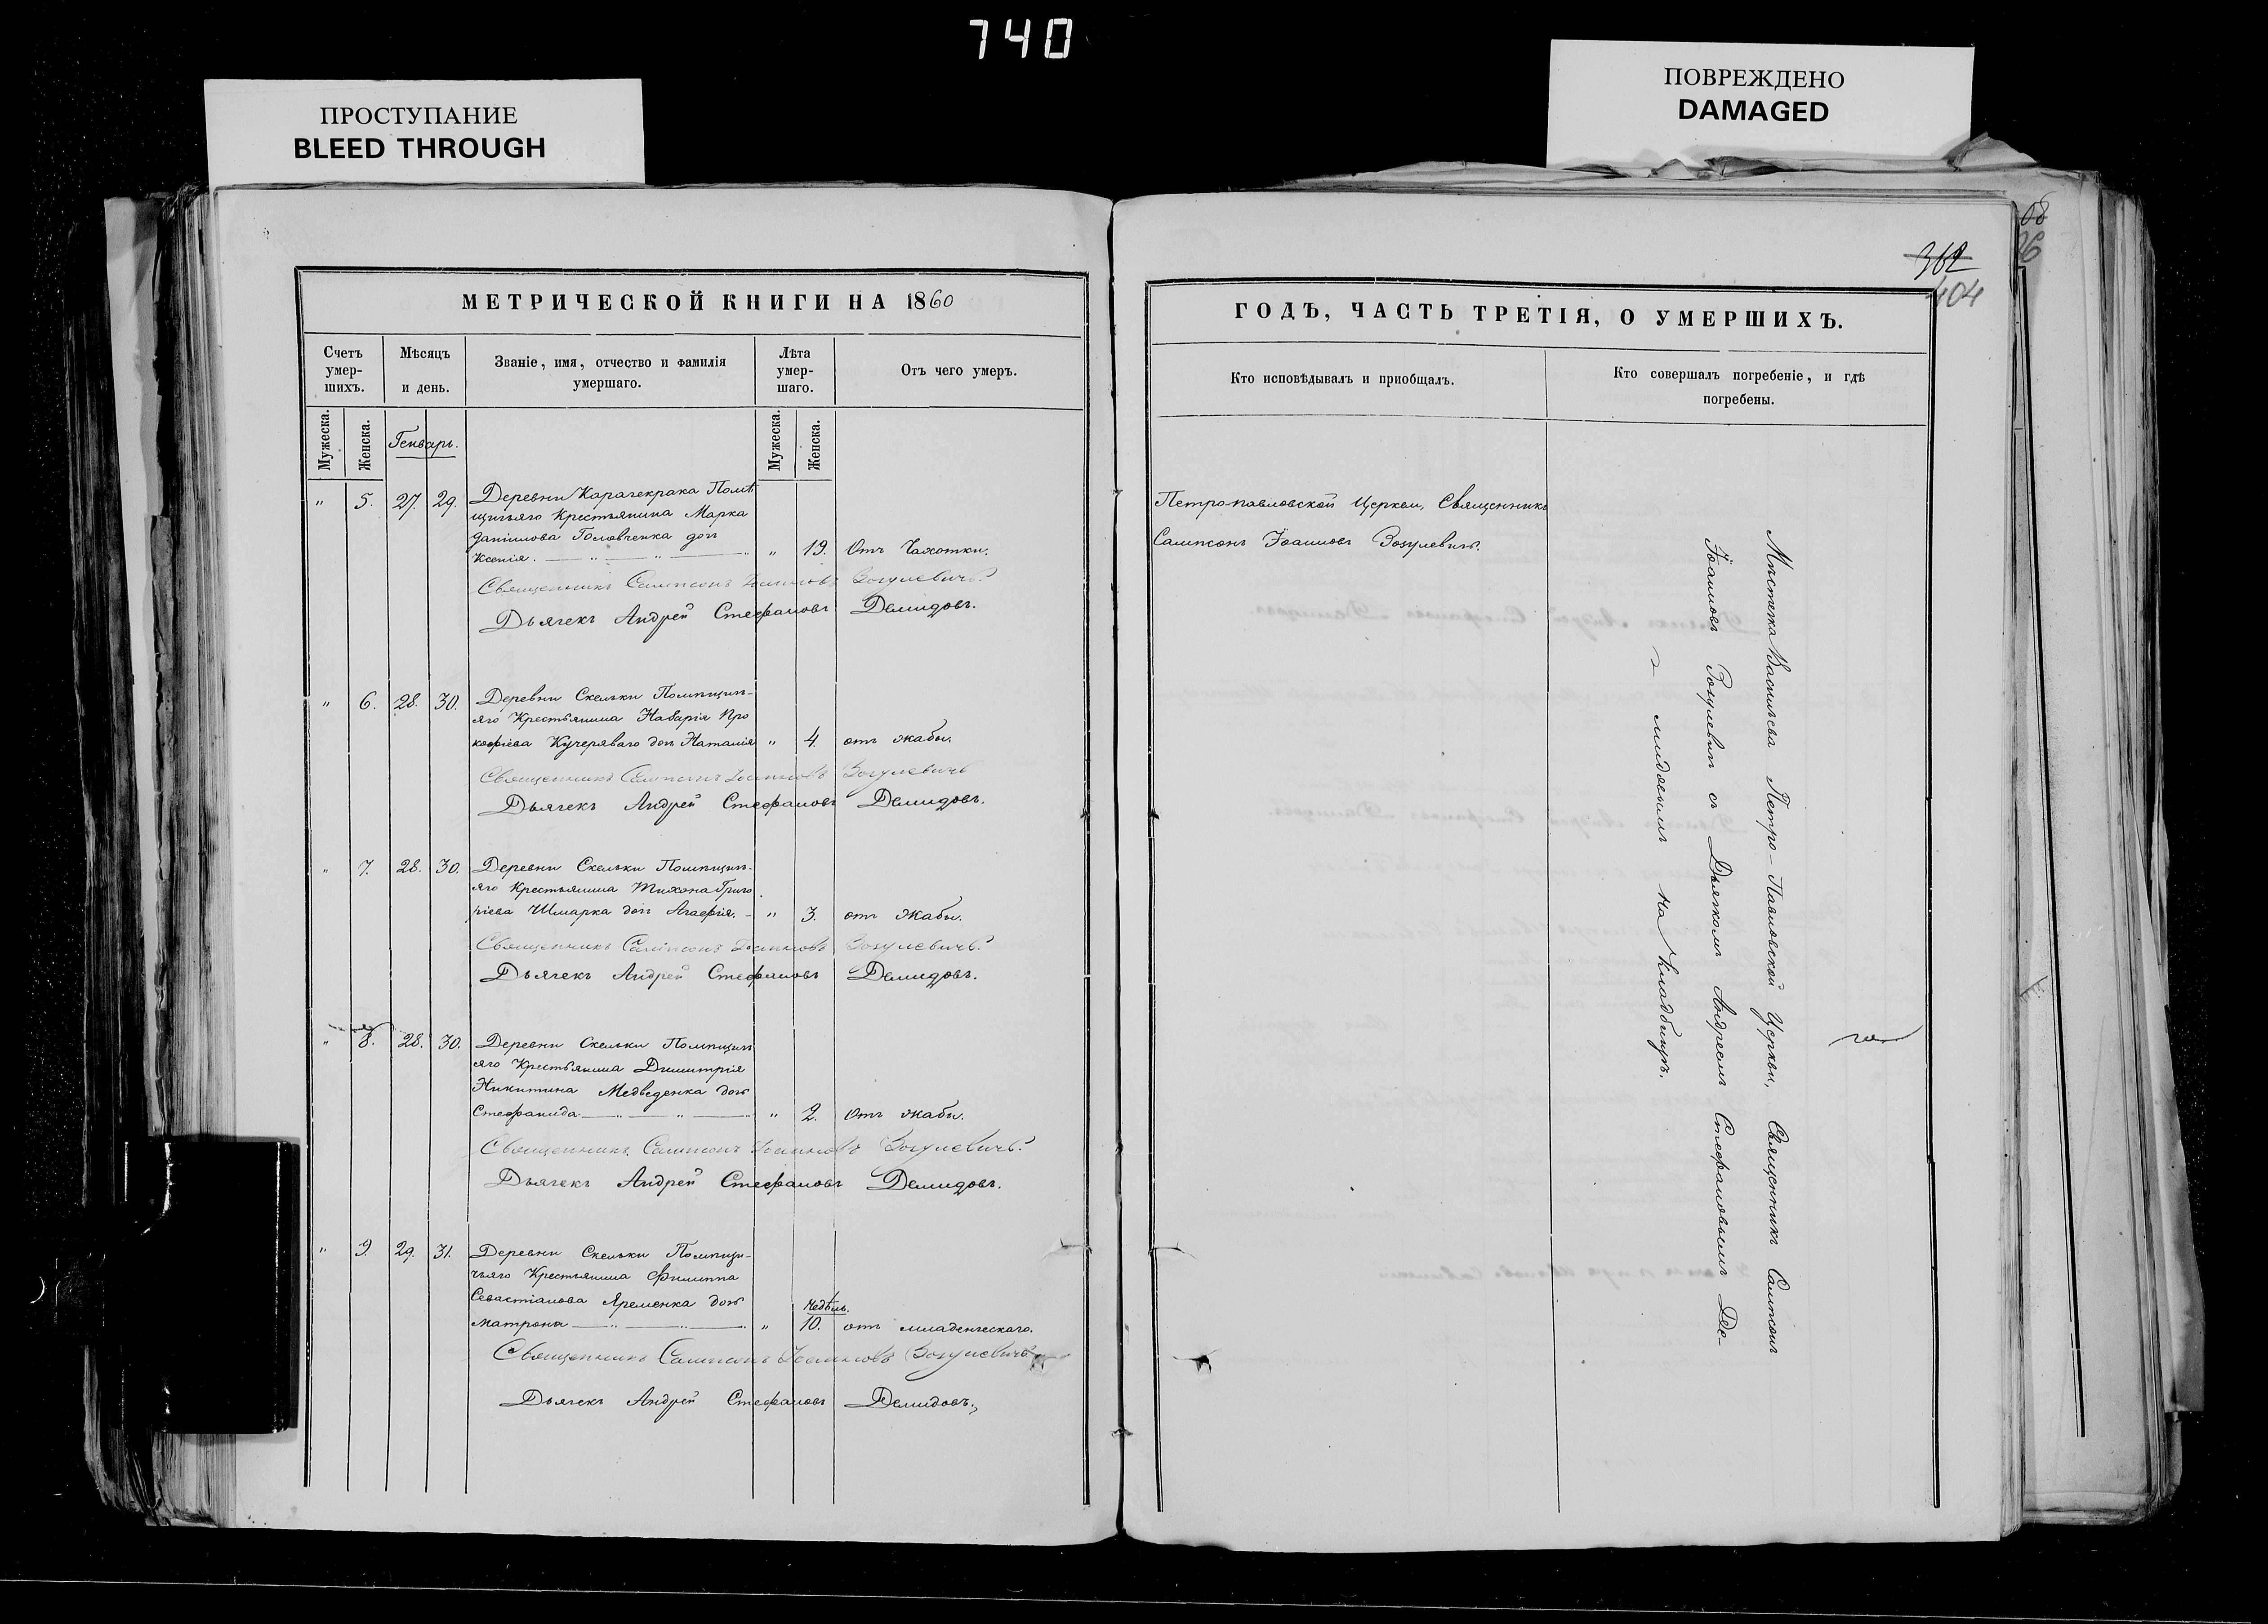 740
ПРОСТУПАНИЕ
BLEED THROUGH
ПОВРЕЖДЕНО
DAMAGED
08
362
404
МЕТРИЧЕСКОЙ КНИГИ НА 1860
Счетъ умер-шихъ.
Мѣсяцъ и день.
Званіе, имя, отчество и фамилія умершаго.
Лѣта умер-шаго.
Отъ чего умеръ.
Мужеска.
Женска.
Генварь.
Мужеска.
Женска.
" 5. 27. 29. Деревни Карачекрака Помѣ
щичьяго Крестьянина Марка
Даніилова Головченка дочь
Ксенія. " 19. Отъ Чахотки.
Священникъ Сампсонъ Іоанновъ Зозулевичъ.
Дьячекъ Андрей Стефановъ Демидовъ.
" 6. 28. 30. Деревни Скельки Помѣщичь-
яго Крестьянина Назарія Про
кофіева Кучеряваго дочь Наталія " 4. отъ жабы.
Священникъ Сампсонъ Іоанновъ Зозулевичъ
Дьячекъ Андрей Стефановъ Демидовъ.
" 7. 28. 30. Деревни Скельки Помѣщичь-
яго Крестьянина Тихона Григо
ріева Шмарка дочь Агафія. - " 3. отъ Жабы.
Священникъ Сампсонъ Іоанновъ Зозулевичъ.
Дьячекъ Андрей Стефановъ Демидовъ.
" 8. 28. 30. Деревни Скельки Помѣщичь
яго Крестьянина Димитрія
Никитина Медведенка дочь
Стефанида " 2. Отъ жабы.
Священникъ Сампсонъ Іоанновъ Зозулевичъ.
Дьячекъ Андрей Стефановъ Демидовъ.
" 9. 29. 31. Деревни Скельки Помѣщи-
чьяго Крестьянина Филиппа
Севастіанова Яременка дочь Недѣль.
Матрона " 10. отъ младенческаго.
Священникъ Сампсонъ Іоанновъ Зозулевичъ
Дьячекъ Андрей Стефановъ Демидовъ.
ГОДЪ, ЧАСТЬ ТРЕТІЯ, О УМЕРШИХЪ.
Кто исповѣдывалъ и приобщалъ.
Кто совершалъ погребеніе, и гдѣ погребены.
Петро-павловской Церкви, Священникъ
Сампсонъ Іоанновъ Зозулевичъ.
Мѣстечка Васильева Петро-Павловской Церкви, Священникъ Сампсонъ
Іоанновъ Зозулевичъ съ Дьячкомъ Андреемъ Стефановымъ Де-
мидовымъ на Кладбищѣ.